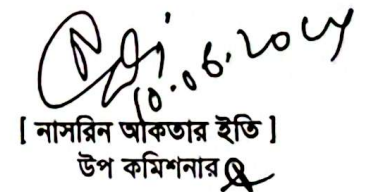 10.06.2024
[ নাসরিন আকতার ইতি ]
উপ কমিশনার